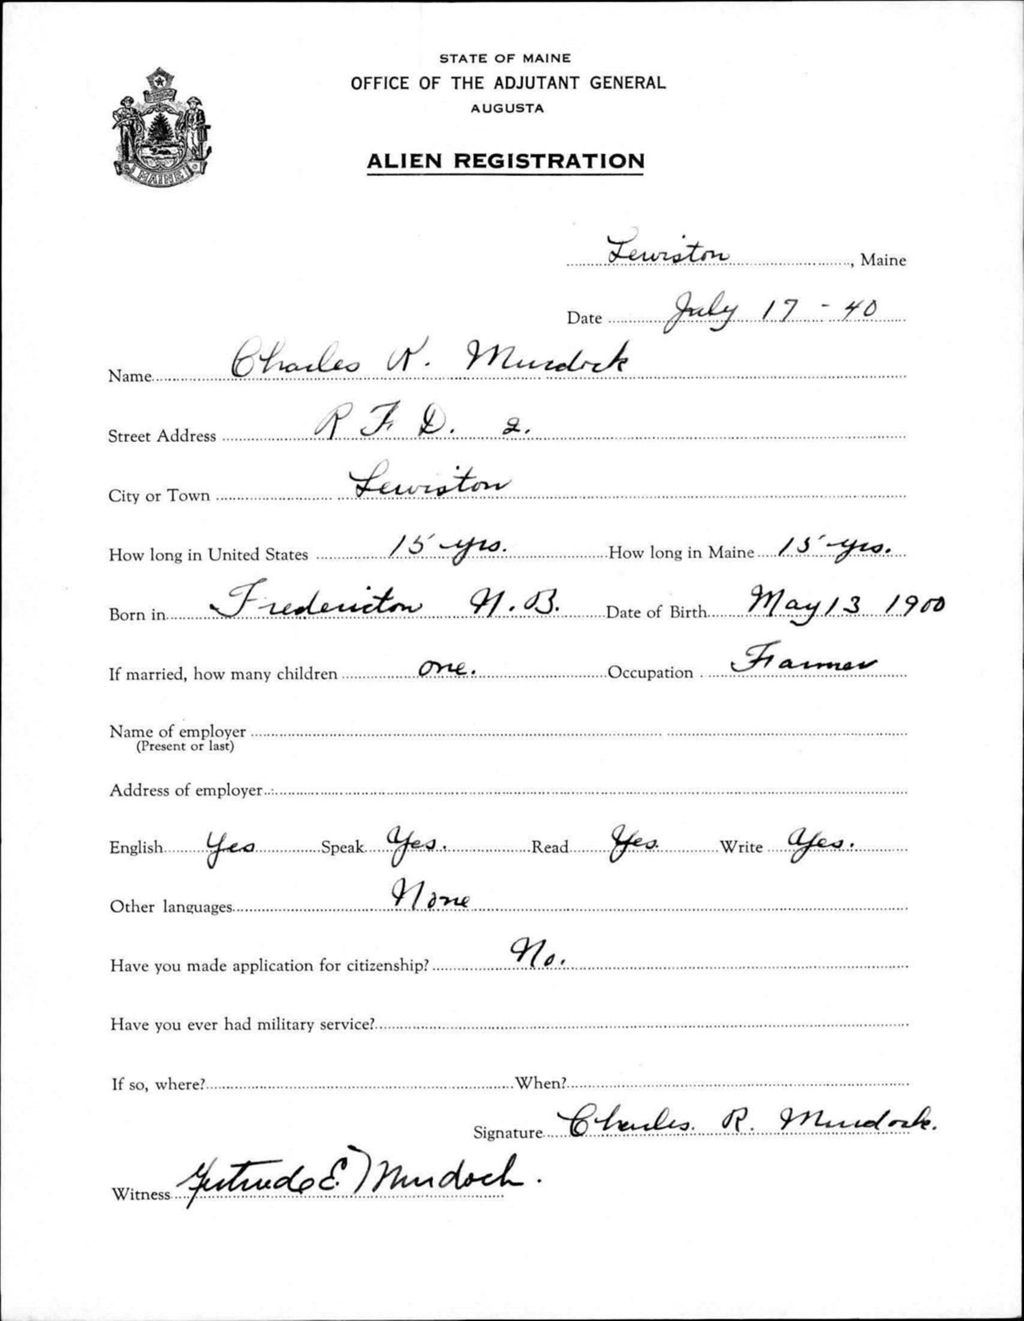 STATE OF MAINE
OFFICE OF THE ADJUTANT GENERAL
AUGUSTA
ALIEN REGISTRATION
MAINE
Lewiston, Maine
Date July 17 - 40
Name Charles R. Murdock
Street Address R F D. 2.
City or Town Lewiston
How long in United States 15 yrs. How long in Maine 15 yrs.
Born in Fredericton N.B. Date of Birth May 13 1900
If married, how many children one. Occupation Farmer
Name of employer
(Present or last)
Address of employer
English Yes Speak Yes. Read Yes. Write Yes.
Other languages None
Have you made application for citizenship? No.
Have you ever had military service?
If so, where? When?
Signature Charles. R. Murdock.
Witness Gertrude E. Murdock.